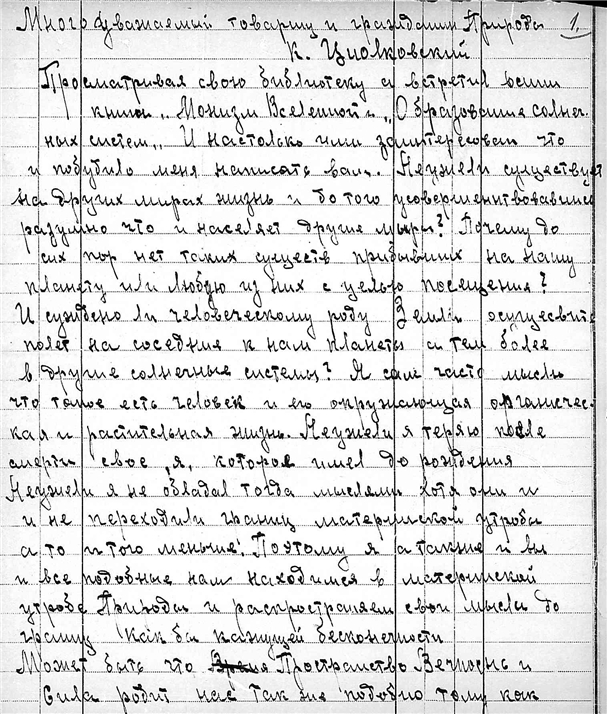 Много уважаемый товарищ и гражданин Природы 1.
К. Циолковский
Просматривая свою библиотеку я встретил ваши
книги „Монизм Вселенной" и „Образование солнеч-
ных систем„ И настолько ими заинтересован что
и побудило меня написать вам. Неужели существует
на других мирах жизнь и до того усовершенствовавшись
разумно что и населяет другие миры? Почему до
сих пор нет таких существ прибывших на нашу
планету или любую из них с целью посещения?
И суждено ли человеческому роду Земли осуществить
полет на соседние к нам планеты а тем более
в другие солнечные системы? Я сам часто мыслю
что такое есть человек и его окружающая органичес-
кая и растительная жизнь. Неужели я теряю после
смерти свое „я„ которое имел до рождения
Неужели я не обладал тогда мыслями хотя они и
и не переходили границ материнской утробы
а то и того меньше. Поэтому я а также и вы
и все подобные нам находимся в материнской
утробе Природы и распространяем свои мысли до
границ как бы кажущей бесконечности
Может быть что Время Пространство Вечность и
Сила родит нас так же подобно тому как